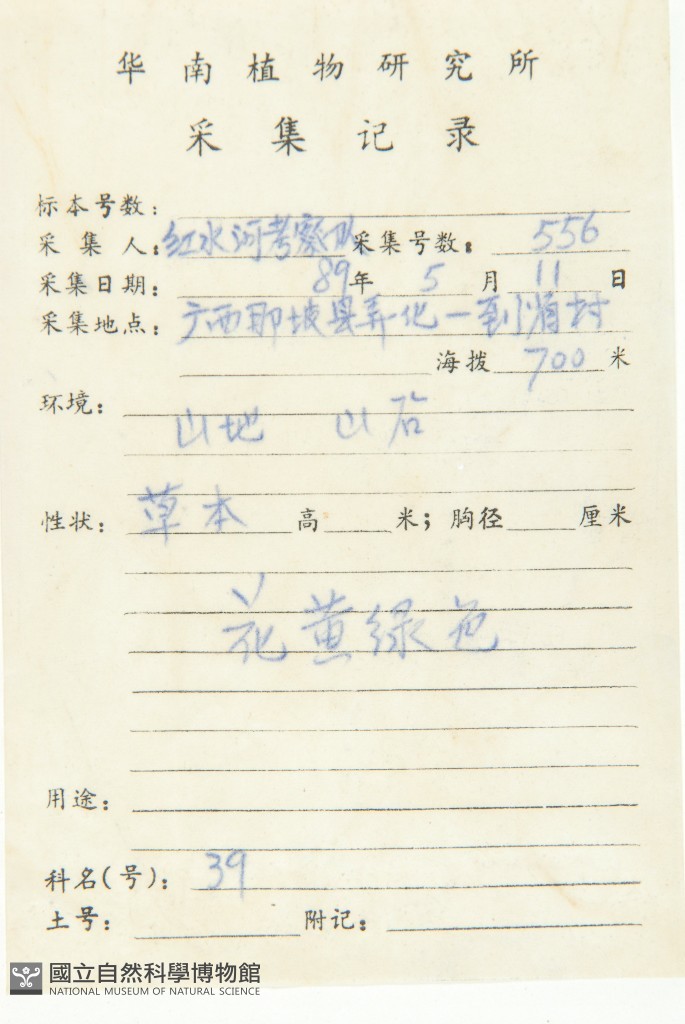 华南植物研究所
采集记录
标本号数:
采集人:红水河考察队 采集号数: 556
采集日期: 89年 5 月 11 日
采集地点: 广西那坡县弄化一到 村
海拨 700 米
环境:
山地 山
性状: 草本 高 米; 胸径 厘米
花黄绿色
用途:
科名(号): 39
土号: 附记:
國立自然科學博物館
NATIONAL MUSEUM OF NATURAL SCIENCE